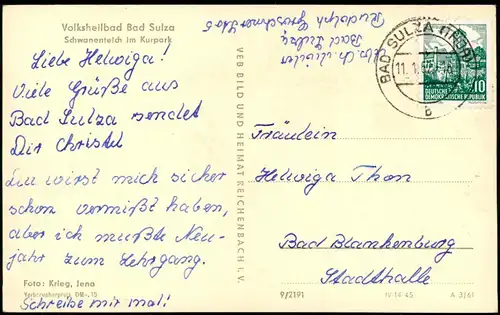 Volksheilbad Bad Sulza
Schwanenteich im Kurpark
Liebe Helwiga!
Viele Grüße aus
Bad Sulza sendet
Dir Christel
Du wirst mich sicher
schon vermißt haben,
aber ich mußte Neu-
jahr zum Lehrgang.
Foto: Krieg, Jena
Verbraucherpreis DM -,15
Schreibe mir mal!
VEB BILD UND HEIMAT REICHENBACH I. V.
Bad Sulza
Rudolph
BAD SULZA
11.1.
b
10
DEUTSCHE
DEMOKRATISCHE REPUBLIK
Fräulein
Helwiga Thon
Bad Blankenburg
Stadthalle
9/2191
IV-14-45
A 3/61